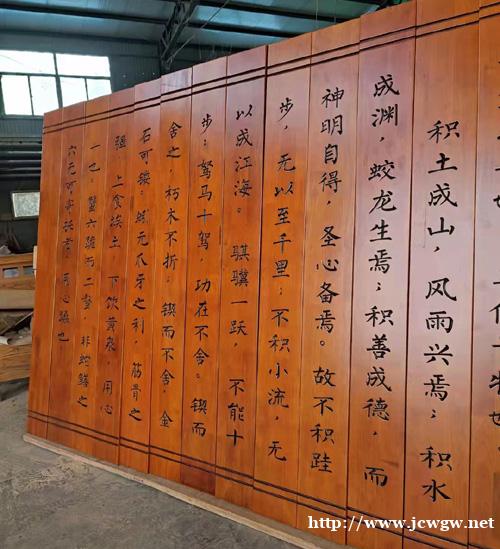 积土成山，风雨兴焉；积水
成渊，蛟龙生焉；积善成德，而
神明自得，圣心备焉。故不积跬
步，无以至千里；不积小流，无
以成江海。骐骥一跃，不能十
步；驽马十驾，功在不舍。锲而
舍之，朽木不折；锲而不舍，金
石可镂。蚓无爪牙之利，筋骨之
强，上食埃土，下饮黄泉，用心
一也。蟹六跪而二螯，非蛇鳝之
穴无可寄托者，用心躁也
http://www.jcwgw.net